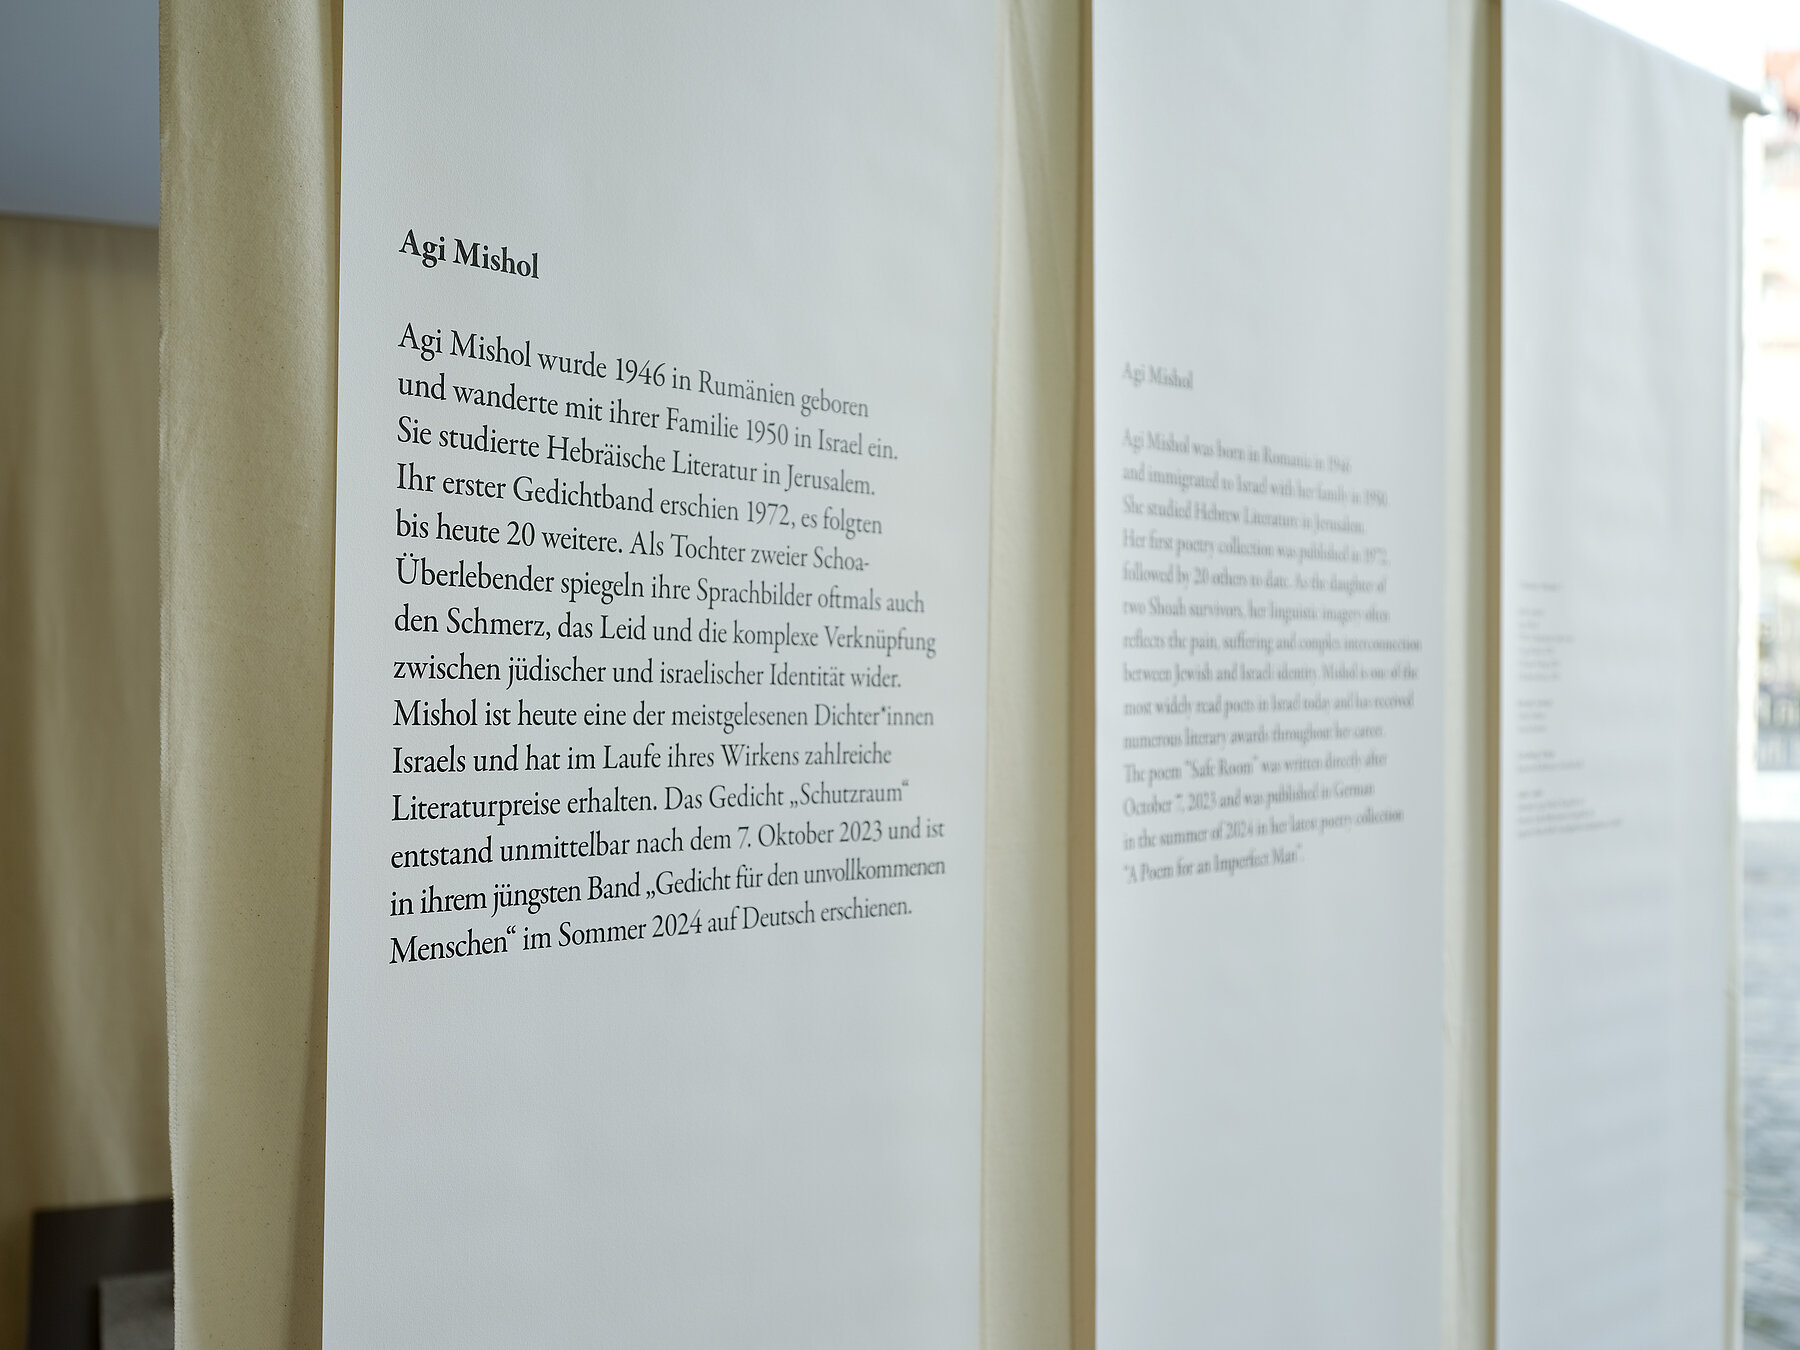 Agi Mishol
Agi Mishol wurde 1946 in Rumänien geboren
und wanderte mit ihrer Familie 1950 in Israel ein.
Sie studierte Hebräische Literatur in Jerusalem.
Ihr erster Gedichtband erschien 1972, es folgten
bis heute 20 weitere. Als Tochter zweier Schoa-
Überlebender spiegeln ihre Sprachbilder oftmals auch
den Schmerz, das Leid und die komplexe Verknüpfung
zwischen jüdischer und israelischer Identität wider.
Mishol ist heute eine der meistgelesenen Dichter*innen
Israels und hat im Laufe ihres Wirkens zahlreiche
Literaturpreise erhalten. Das Gedicht „Schutzraum“
entstand unmittelbar nach dem 7. Oktober 2023 und ist
in ihrem jüngsten Band „Gedicht für den unvollkommenen
Menschen“ im Sommer 2024 auf Deutsch erschienen.
Agi Mishol
Agi Mishol was born in Romania in 1946
and immigrated to Israel with her family in 1950.
She studied Hebrew Literature in Jerusalem.
Her first poetry collection was published in 1972,
followed by 20 others to date. As the daughter of
two Shoah survivors, her linguistic imagery often
reflects the pain, suffering and complex interconnection
between Jewish and Israeli identity. Mishol is one of the
most widely read poets in Israel today and has received
numerous literary awards throughout her career.
The poem “Safe Room” was written directly after
October 7, 2023 and was published in German
in the summer of 2024 in her latest poetry collection
“A Poem for an Imperfect Man”.